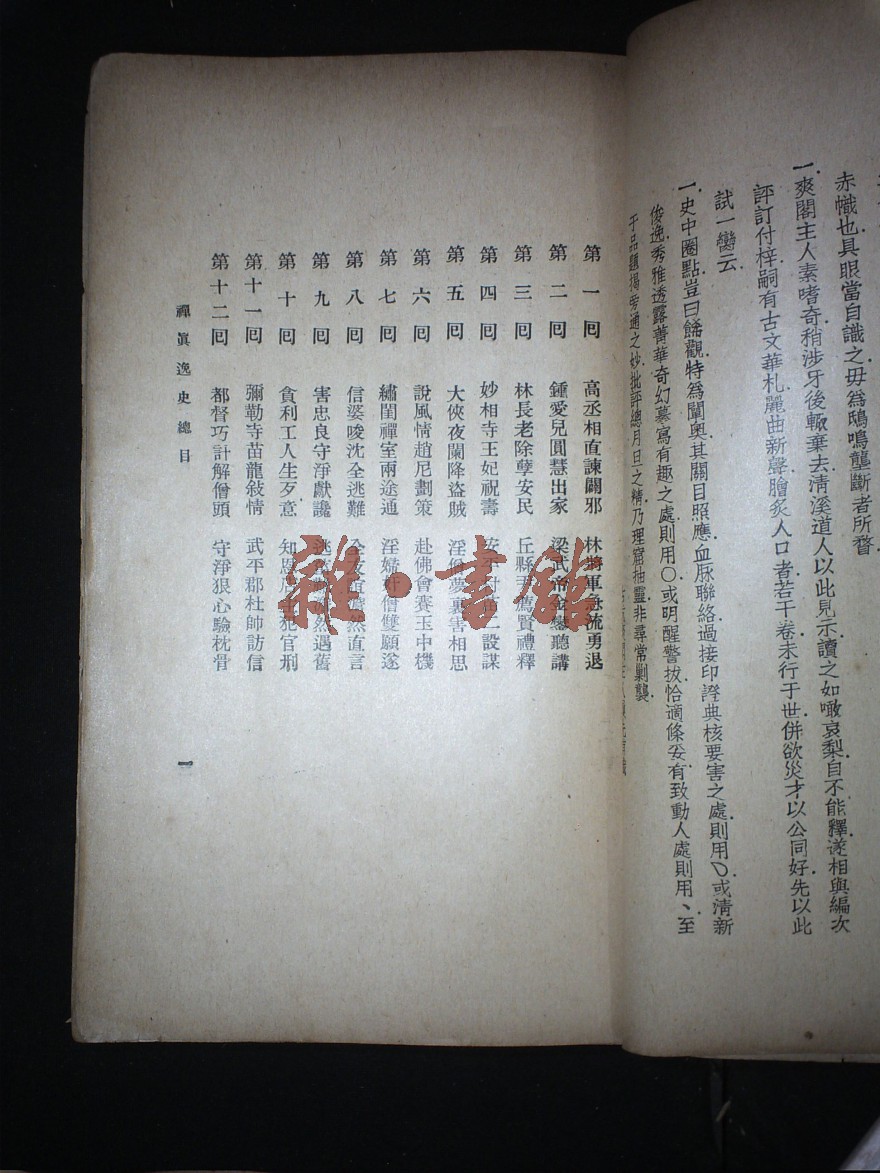 赤幟也具眼當自識之毋爲鴟鳴壟斷者所瞀
一爽閣主人素嗜奇稍涉牙後輙棄去清溪道人以此見示讀之如噉哀梨自不能釋遂相與編次
評訂付梓嗣有古文華札麗曲新聲膾炙人口者若干卷未行于世併欲災才以公同好先以此
試一臠云
一史中圈點豈曰飾觀特爲闡奧其關目照應血脉聯絡過接印證典核要害之處則用或清新
俊逸秀雅透露菁華奇幻摹寫有趣之處則用〇或明醒警拔恰適條妥有致動人處則用丶至
于品題揭旁通之妙批評總月旦之精乃理窟抽靈非尋常剿襲
第一囘 高丞相直諫闢邪 林將軍急流勇退
第二囘 鍾愛兒圓慧出家 梁武帝金鑾聽講
第三囘 林長老除孽安民 丘縣尹薦賢禮釋
第四囘 妙相寺王妃祝壽 安平村苗二設謀
第五囘 大俠夜闌降盜賊 淫僧夢裏害相思
第六囘 說風情趙尼劃策 赴佛會賽玉中機
第七囘 繡閨禪室兩途通 淫婦奸僧雙願遂
第八囘 信婆唆沈全逃難 全友直言
第九囘 害忠良守淨獻讒 逃 然遇舊
第十囘 貪利工人生歹意 知恩店主犯官刑
第十一囘 彌勒寺苗龍敍情 武平郡杜帥訪信
第十二囘 都督巧計解僧頭 守淨狠心驗枕骨
禪眞逸史總目
一
雜·書館